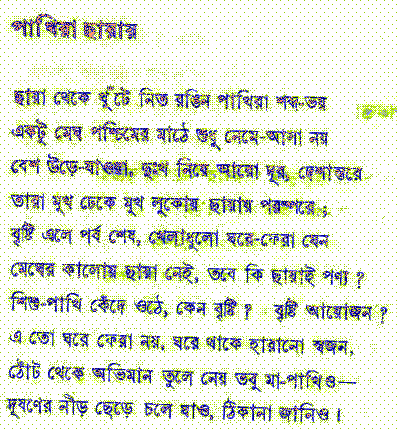 পাখিরা ছায়ায়
ছায়া থেকে খুঁটে নিত রঙিন পাখিরা শব্দ-ভয়
একটু মেঘ পশ্চিমের মাঠে শুধু নেমে-আসা নয়
বেশ উড়ে-যাওয়া, দুঃখ নিয়ে আরো দূর, দেশান্তরে
তারা মুখ ঢেকে মুখ লুকোয় ছায়ায় পরস্পরে ;
বৃষ্টি এলে পর্ব শেষ, খেলাধুলো ঘরে-ফেরা যেন
মেঘের কালোয় ছায়া নেই, তবে কি ছায়াই পণ্য ?
শিশু-পাখি কেঁদে ওঠে, কেন বৃষ্টি ? বৃষ্টি আয়োজন ?
এ তো ঘরে ফেরা নয়, ঘরে থাকে হারানো স্বজন,
ঠোঁট থেকে অভিমান তুলে নেয় তবু মা-পাখিও—
দূষণের নীড় ছেড়ে চলে যাও, ঠিকানা জানিও।